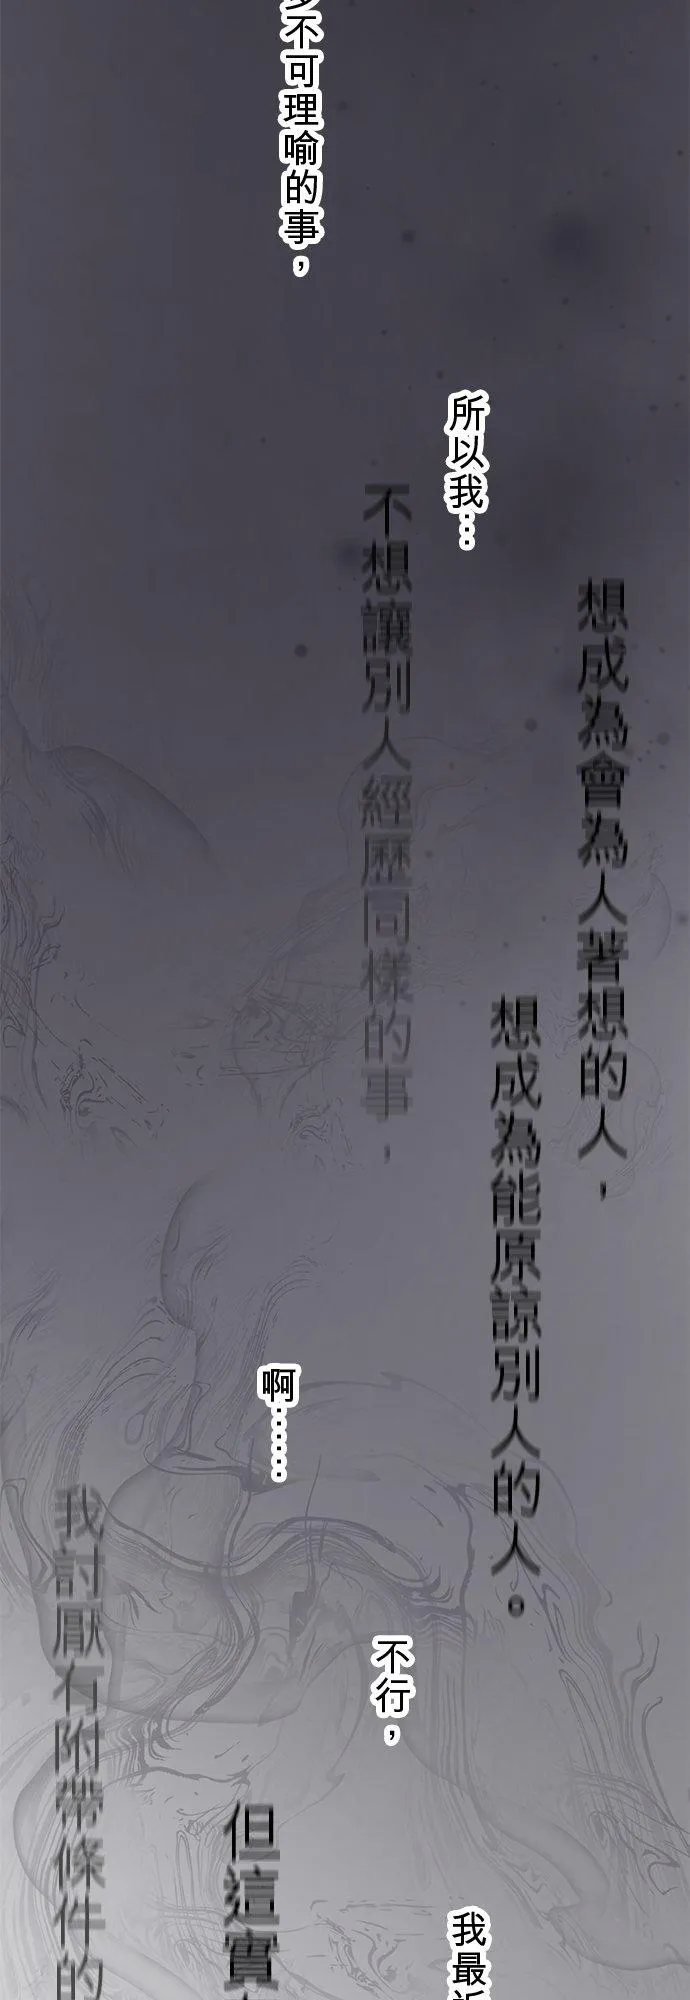 多不可理喻的事，
所以我…
想成為會為人著想的人，
不想讓別人經歷同樣的事，
想成為能原諒別人的人。
啊………
不行，
我討厭有附帶條件的
但這實
我最近